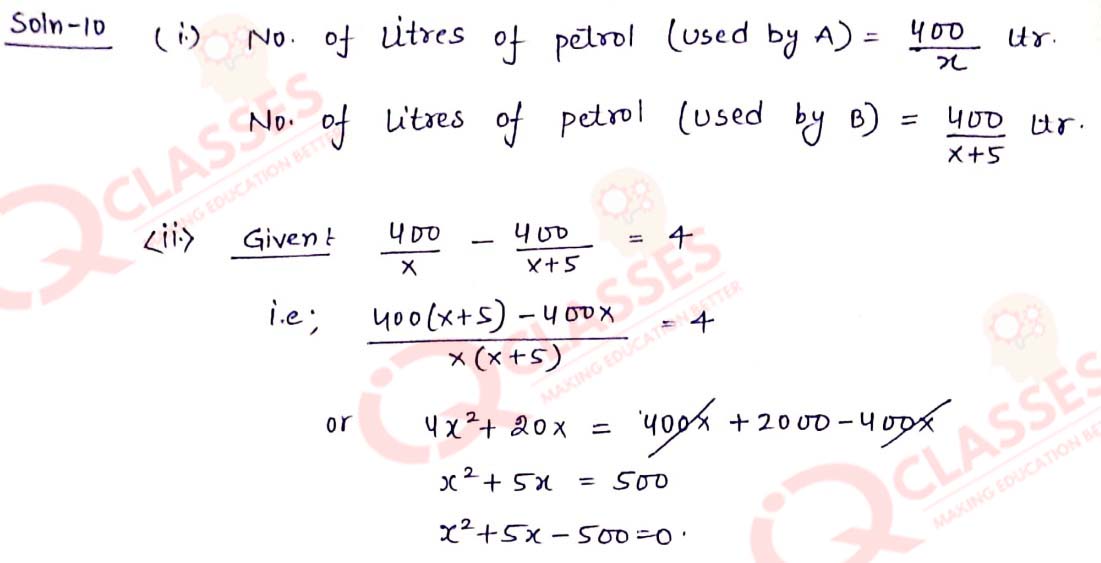 Soln-10 (i) No. of litres of petrol (used by A) = 400/x ltr.
No. of litres of petrol (used by B) = 400/x+5 ltr.
<ii> Given: 400/x - 400/x+5 = 4
i.e; 400(x+5) - 400x / x(x+5) = 4
or 4x² + 20x = 400x + 2000 - 400x
x² + 5x = 500
x² + 5x - 500 = 0.
CLASSES
MAKING EDUCATION BETTER
CLASSES
MAKING EDUCATION BETTER
CLASSES
MAKING EDUCATION BE